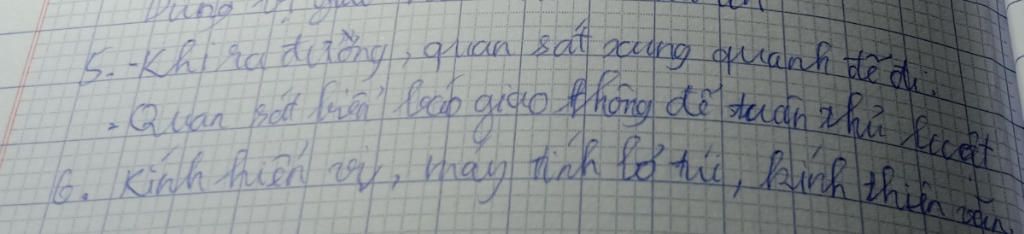 Dùng
5. - Khi ra đường, quan sát xung quanh để đi.
- Quan sát biển báo giao thông để tuân thủ luật
6. Kính hiển vi, máy tính, kính thiên văn.